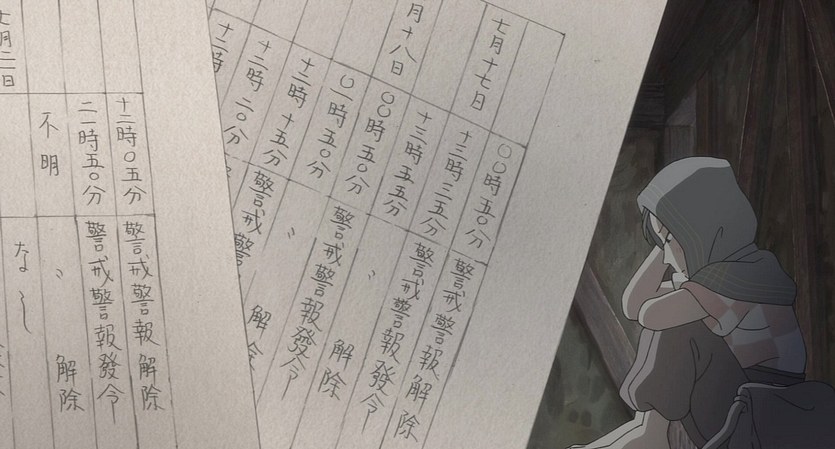 七月十七日
〇〇時五〇分 警戒警報解除
十三時三五分 警戒警報發令
十三時五五分 〃 解除
月十八日 〇〇時五〇分 警戒警報發令
〇一時五〇分 〃 解除
十二時十五分 警戒警
十二時二〇分
十二時
十二時〇五分 警戒警報解除
二一時五〇分 警戒警報發令
不明 〃 解除
七月二日 なし